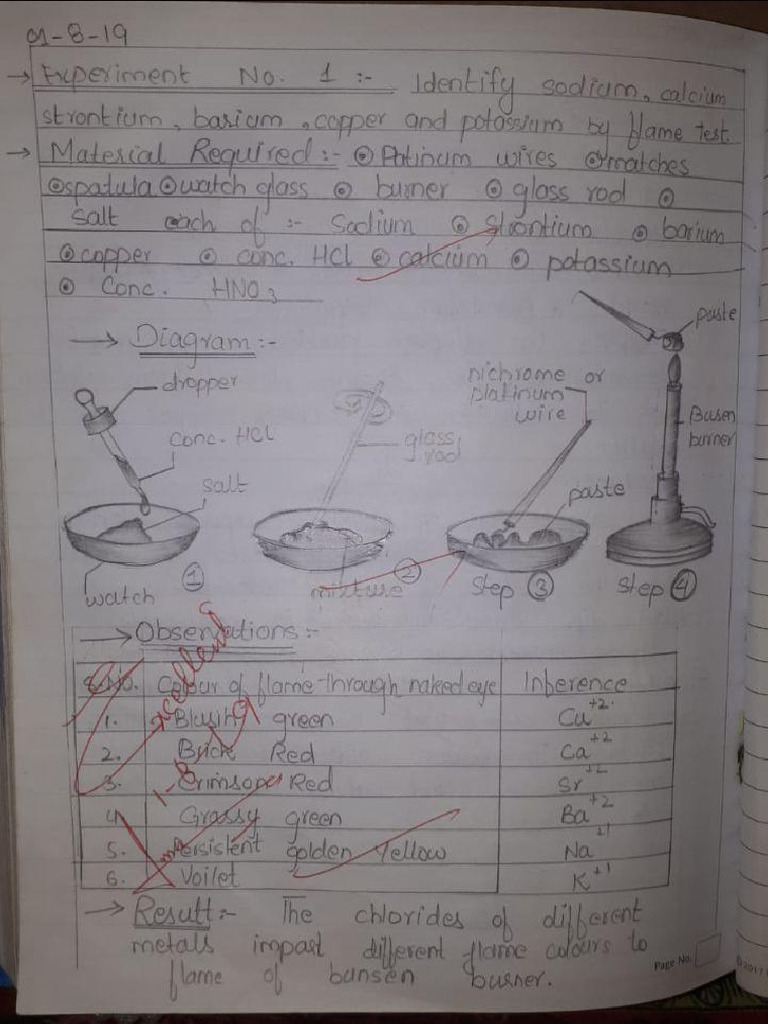 01-8-19
→ Experiment No. 1 :- Identify sodium, calcium
strontium, barium, copper and potassium by flame test
→ Material Required :- ⊙ Platinum wires ⊙ matches
⊙ spatula ⊙ watch glass ⊙ burner ⊙ glass rod ⊙
salt each of :- Sodium ⊙ Strontium ⊙ barium
⊙ copper ⊙ conc. HCl ⊙ calcium ⊙ potassium
⊙ Conc. HNO3
→ Diagram :-
dropper
conc. HCl
salt
watch
1
glass rod
mixture
2
nichrome or
platinum
wire
paste
Step 3
paste
Busen
burner
Step 4
→ Observations :-
S.No. Colour of flame through naked eye Inference
1. Bluish green Cu+2
2. Brick Red Ca+2
3. Crimson Red Sr+2
4. Grassy green Ba+2
5. Persistent golden Yellow Na+1
6. Voilet K+1
Excellent
1-8-19
→ Result :- The chlorides of different
metals impast different flame colours to
flame of bunsen burner.
Page No.